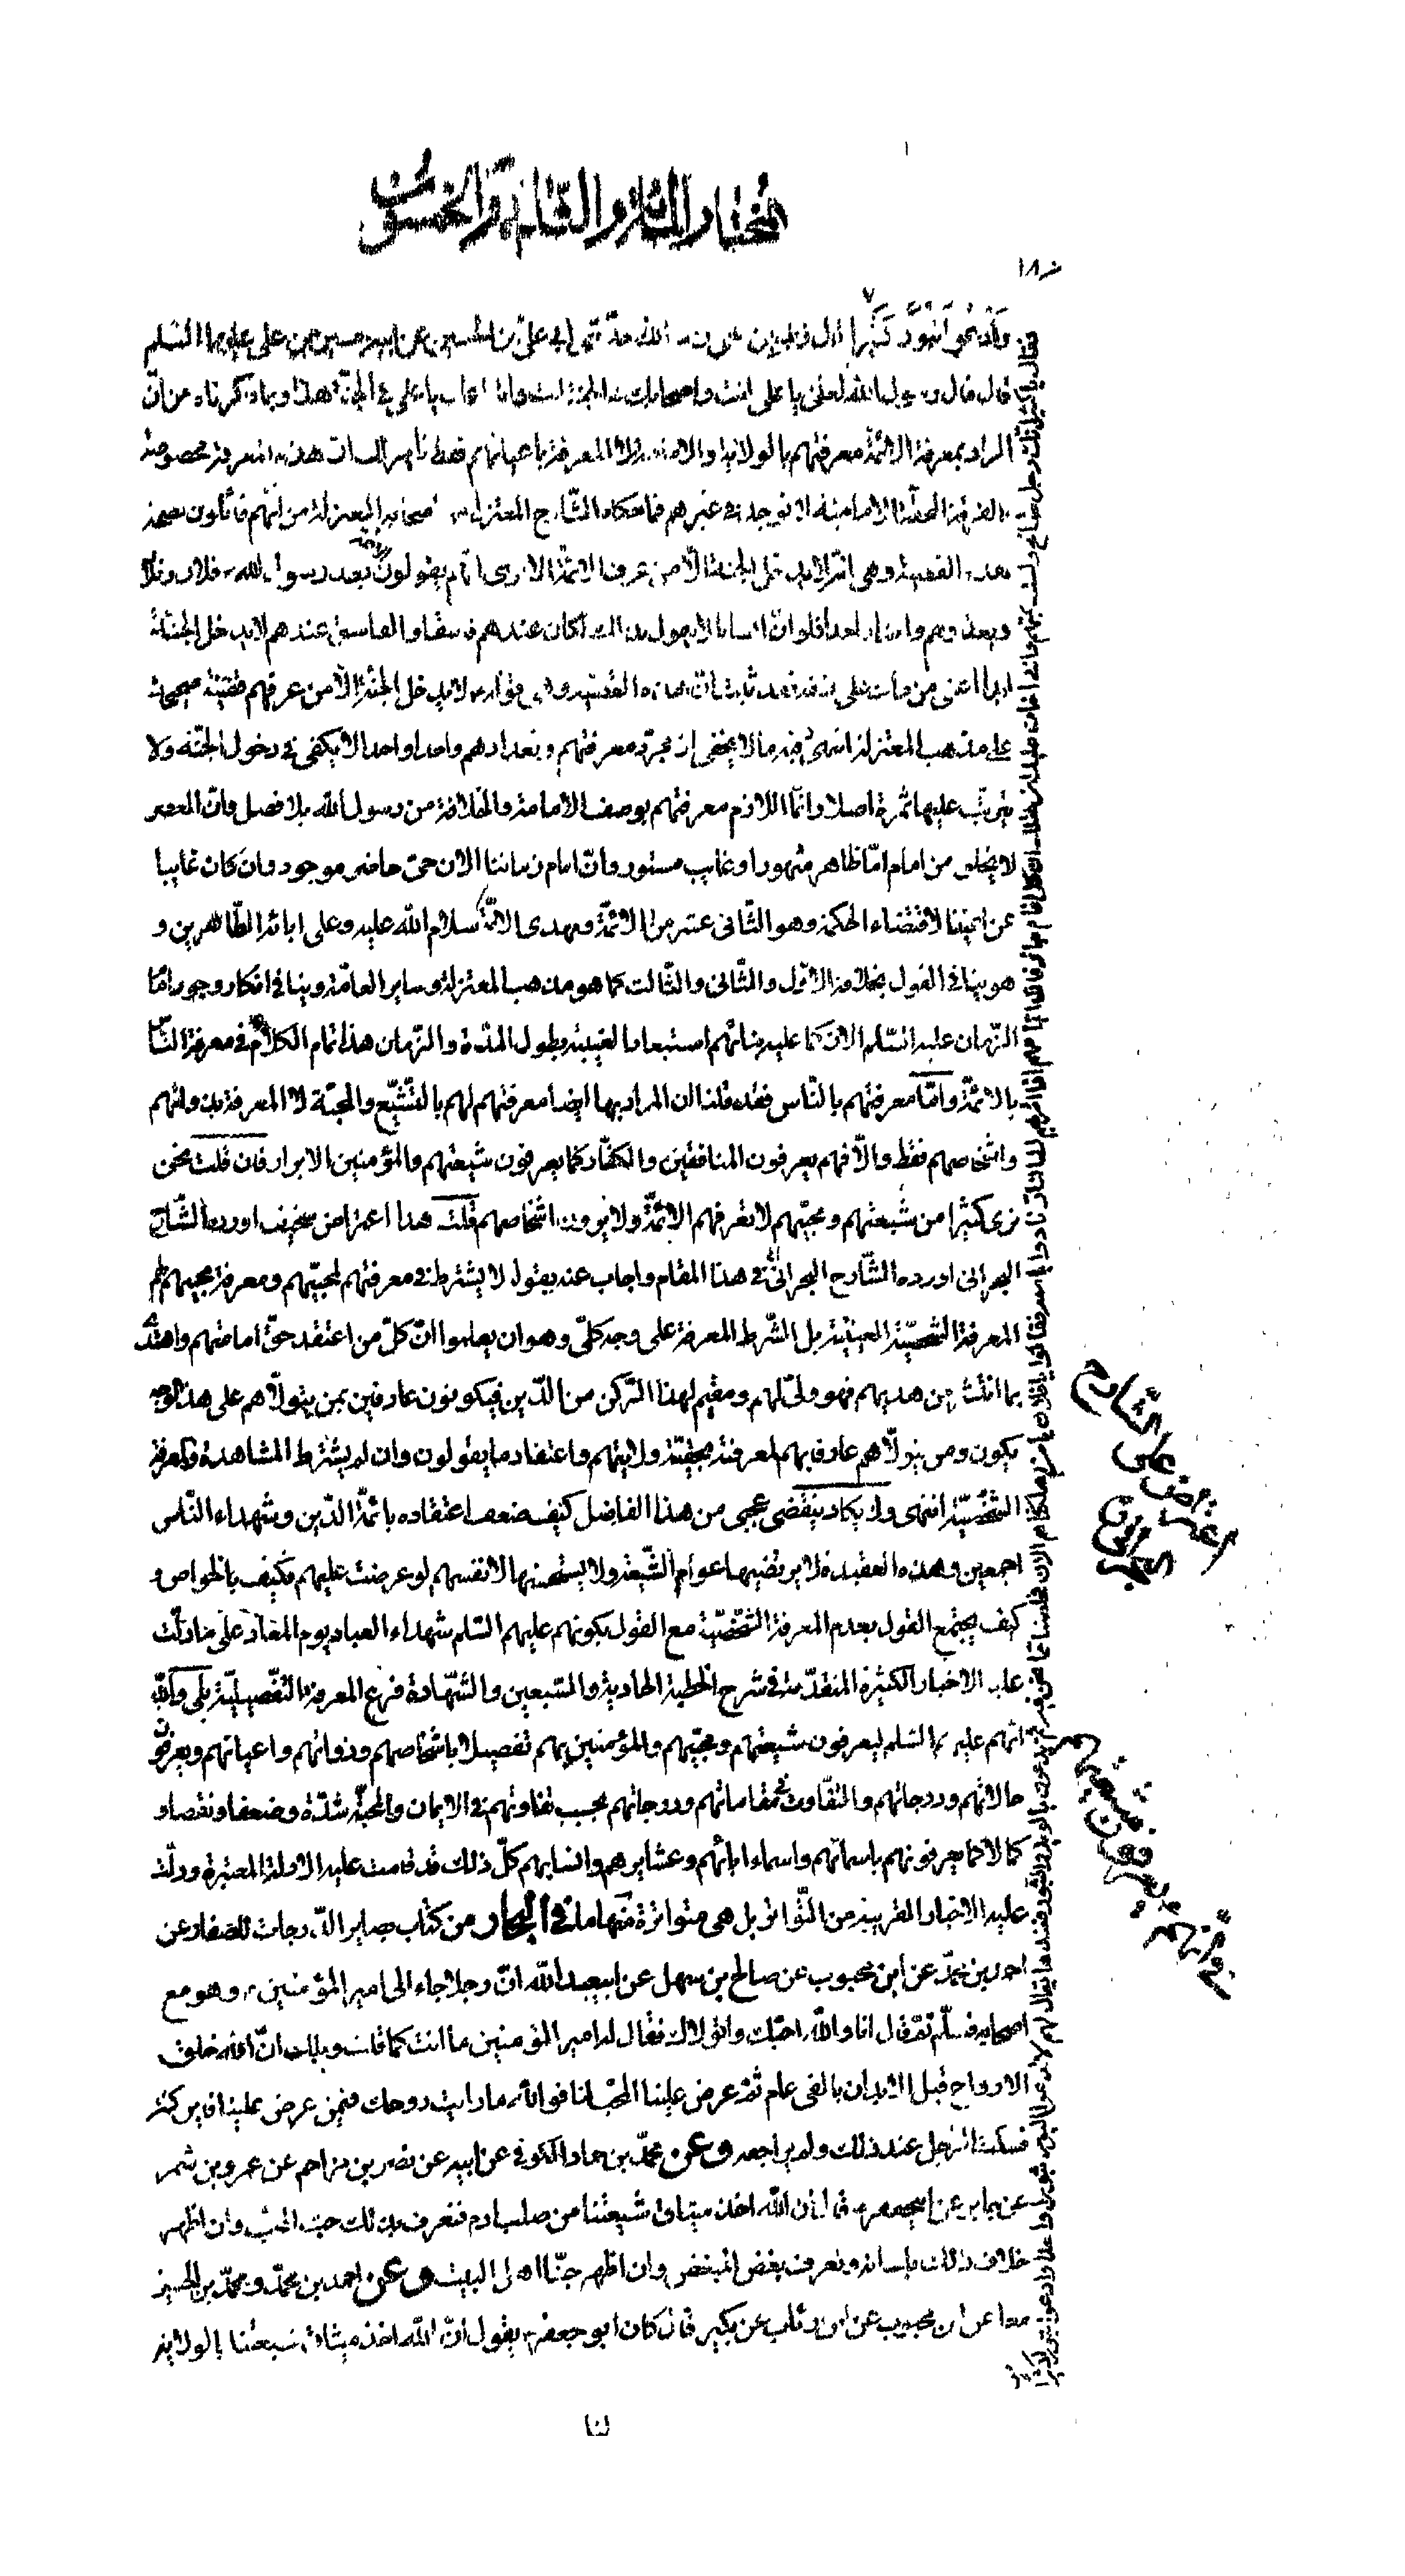 المختار المائة والثانية والخمسون
١٨٠
وادعوا ثبورا كثيرا قال زيد بن علي حدثني ابي علي بن الحسين عن ابيه حسين بن علي عليهما السلم
قال قال رسول الله لعلي يا علي انت واصحابك في الجنة انت واتباعك يا علي في الجنة هذا وبما ذكرناه من ان
المراد بمعرفة الائمة معرفتهم بالولاية والامامة لا المعرفة باعيانهم فقط ظهر لك ان هذه المعرفة مخصوصة
بالفرقة المحقة الامامية لا توجد في غيرهم فما حكاه الشارح المعتزلي من اصحابه المعتزلة من انهم قائلون بصحة
هذه القضية وهي انه لا يدخل الجنة الا من عرف الائمة الا ترى انهم يقولون الائمة بعد رسول الله فلان وفلان
ويعدونهم واحدا واحدا فلو ان انسانا لا يقول بذلك لكان عندهم فاسقا والفاسق عندهم لا يدخل الجنة
ابدا اعني من مات على فسقه فقد ثبت ان هذه القضية وهي قوله لا يدخل الجنة الا من عرفهم قضية صحيحة
على مذهب المعتزلة انتهى فيه ما لا يخفى اذ مجرد معرفتهم وتعدادهم واحدا واحدا لا يكفي في دخول الجنة ولا
يترتب عليها ثمرة اصلا وانما اللازم معرفتهم بوصف الامامة والخلافة من رسول الله بلا فصل وان العصر
لا يخلو من امام اما ظاهر مشهور او غايب مستور وان امام زماننا الان حي حاضر موجود وان كان غايبا
عن اعيننا لاقتضاء الحكمة وهو الثاني عشر من الائمة ومهدي الامة سلام الله عليه وعلى ابائه الطاهرين و
هو ينافي القول بخلافة الاول والثاني والثالث كما هو مذهب المعتزلة وساير العامة وينافي انكار وجود امام
الزمان عليه السلم الان كما عليه بناءهم استبعادا لغيبته بطول المدة والزمان هذا تمام الكلام في معرفة الناس
بالائمة واما معرفتهم بالناس فقد قلنا ان المراد بها ايضا معرفتهم لهم بالتشيع والمحبة لا المعرفة بذواتهم
واشخاصهم فقط والا فهم يعرفون المنافقين والكفار كما يعرفون شيعتهم والمؤمنين الابرار فان قلت نحن
نرى كثيرا من شيعتهم ومحبيهم لا تعرفهم الائمة ولا يرون اشخاصهم قلت هذا اعتراض سخيف اورده الشارح
البحراني اورده الشارح البحراني في هذا المقام واجاب عنه بقوله لا يشترط في معرفتهم لمحبيهم ومعرفة محبيهم لهم
المعرفة الشخصية العينية بل الشرط المعرفة على وجه كلي وهو ان يعلموا ان كل من اعتقد حق امامتهم واهتدى
بما انتشر من هديهم فهو ولي لهم ومقيم لهذا الركن من الدين فيكونون عارفين بمن يتولاهم على هذا الوجه
يكون ومن يتولاهم عارفا بهم لمعرفته بحقية ولايتهم واعتقاد ما يقولون وان لم يشترط المشاهدة والمعرفة
الشخصية انتهى ولا يكاد ينقضي عجبي من هذا الفاضل كيف ضعف اعتقاده بائمة الدين وشهداء الناس
اجمعين وهذه العقيدة لا يرتضيها عوام الشيعة ولا يستحسنها لانفسهم لو عرضت عليهم فكيف بالخواص و
كيف يجتمع القول بعدم المعرفة الشخصية مع القول بكونهم عليهم السلم شهداء العباد يوم المعاد على ما دلت
عليه الاخبار الكثيرة المتقدمة في شرح الخطبة الحادية والسبعين والشهادة فرع المعرفة التفصيلية بلى والله
انهم عليهم السلم ليعرفون شيعتهم ومحبيهم والمؤمنين بهم تفصيلا باشخاصهم وذواتهم واعيانهم ويعرفون
حالاتهم ودرجاتهم والتفاوت في مقاماتهم ودرجاتهم بحسب تفاوتهم في الايمان والمحبة شدة وضعفا ونقصا و
كمالا كما يعرفونهم باسمائهم واسماء ابائهم وعشايرهم وانسابهم كل ذلك قد قامت عليه الادلة المعتبرة ودلت
عليه الاخبار القريبة من التواتر بل هي متواترة منها ما في البحار من كتاب بصاير الدرجات للصفار عن
احمد بن محمد عن ابن محبوب عن صالح بن سهل عن ابيعبد الله ان رجلا جاء الى امير المؤمنين وهو مع
اصحابه فسلم ثم قال انا والله احبك واتولاك فقال له امير المؤمنين ما انت كما قلت ويلك ان الله خلق
الارواح قبل الابدان بالفي عام ثم عرض علينا المحب لنا فوالله ما رايت روحك فيمن عرض علينا فاين كنت
فسكت الرجل عند ذلك ولم يراجعه وعن محمد بن حماد الكوفي عن ابيه عن نصر بن مزاحم عن عمرو بن شمر
عن جابر عن ابيجعفر قال ان الله اخذ ميثاق شيعتنا من صلب ادم فنعرف بذلك حب المحب وان اظهر
خلاف ذلك بلسانه ونعرف بغض المبغض وان اظهر حبنا اهل البيت وعن احمد بن محمد ومحمد بن الحسين
معا عن ابن محبوب عن ابن رئاب عن بكير قال كان ابو جعفر يقول ان الله اخذ ميثاق شيعتنا بالولاية
لنا
اعتراض على الشارح
البحراني
في انهم يعرفون شيعتهم